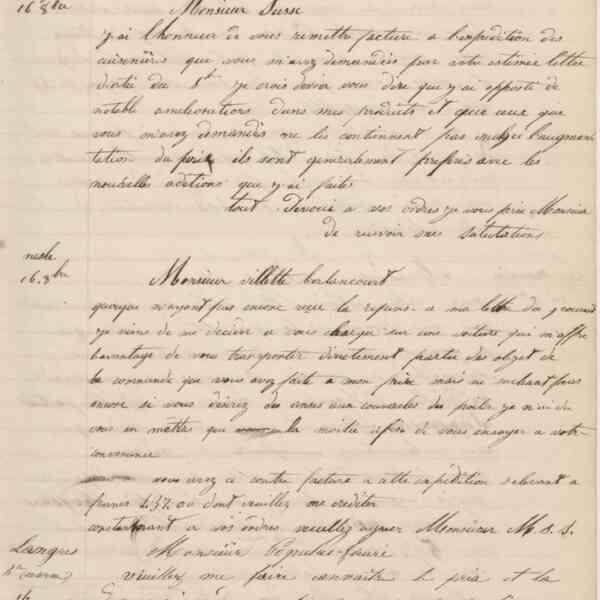 16 8bre
Monsieur Susse
j'ai l'honneur de vous remettre facture a l'expedition des
cuisinières que vous m'avez demandées par votre estimée lettre
datée du 8ct je crois devoir vous dire que j'ai apporté de
notable ameliorations dans mes produits et que ceux que
vous m'avez demandés ne les contiennent pas malgré l'augmen
tation du prix ils sont generalement preferés avec les
nouvelles aditions que j'ai faites
tout devoué a vos ordres je vous prie Monsieur
de recevoir mes salutations
nesle
16. 8bre
Monsieur villette
quoique n'ayant pas encore reçu la reponse a ma lettre du
je viens de me decider a vous charger sur une voiture qui m'offre
l'avantage de vous transporter directement partie des objet de
la commande que vous avez faite a mon père mais ne sachant pas
encore si vous désirez des anses aux couvercles des poëles je n'ai du
vous en mettre que la moitie afin de vous envoyer a votre
convenance
vous avez ci contre facture a cette expédition s'elevant a
francs 437.00 dont veuillez me crediter
constamment a vos ordres veuillez agreer Monsieur M. S. S.
Langres
Monsieur
veuillez me faire connaître le prix et la
16